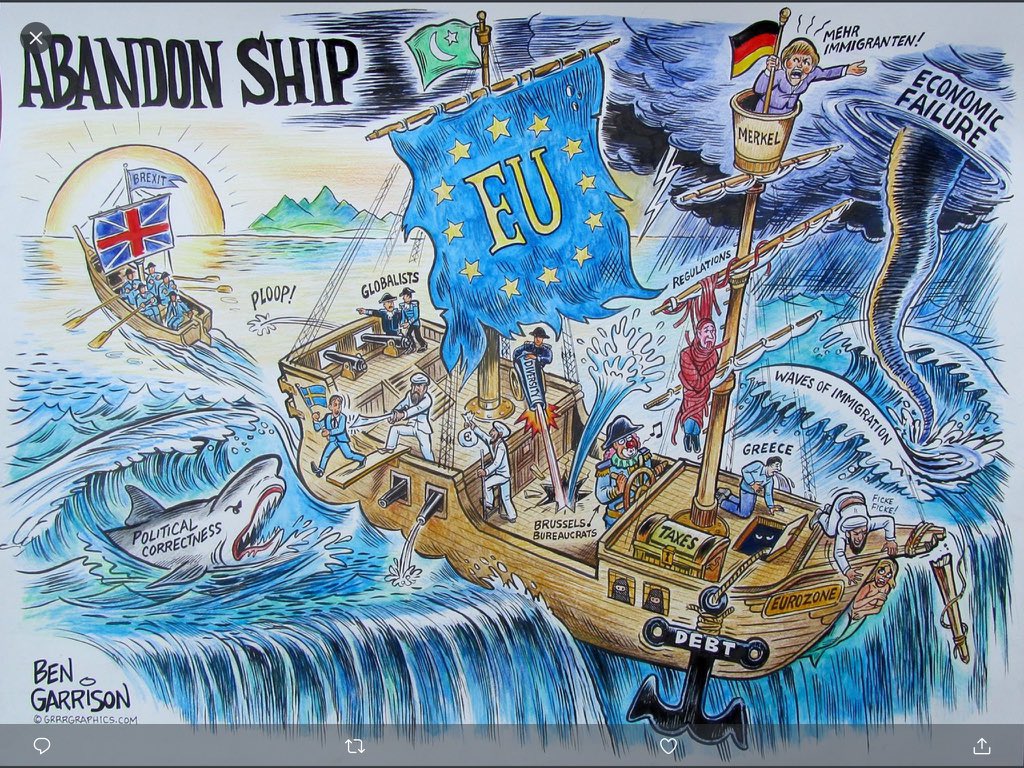 ABANDON SHIP
MEHR
IMMIGRANTEN!
ECONOMIC
FAILURE
MERKEL
BREXIT
EU
PLOOP!
GLOBALISTS
REGULATIONS
DIVERSITY
WAVES OF IMMIGRATION
GREECE
FICKE
FICKE!
POLITICAL
CORRECTNESS
BRUSSELS
BUREAUCRATS
TAXES
EUROZONE
DEBT
BEN
GARRISON
© GRRRGRAPHICS.COM